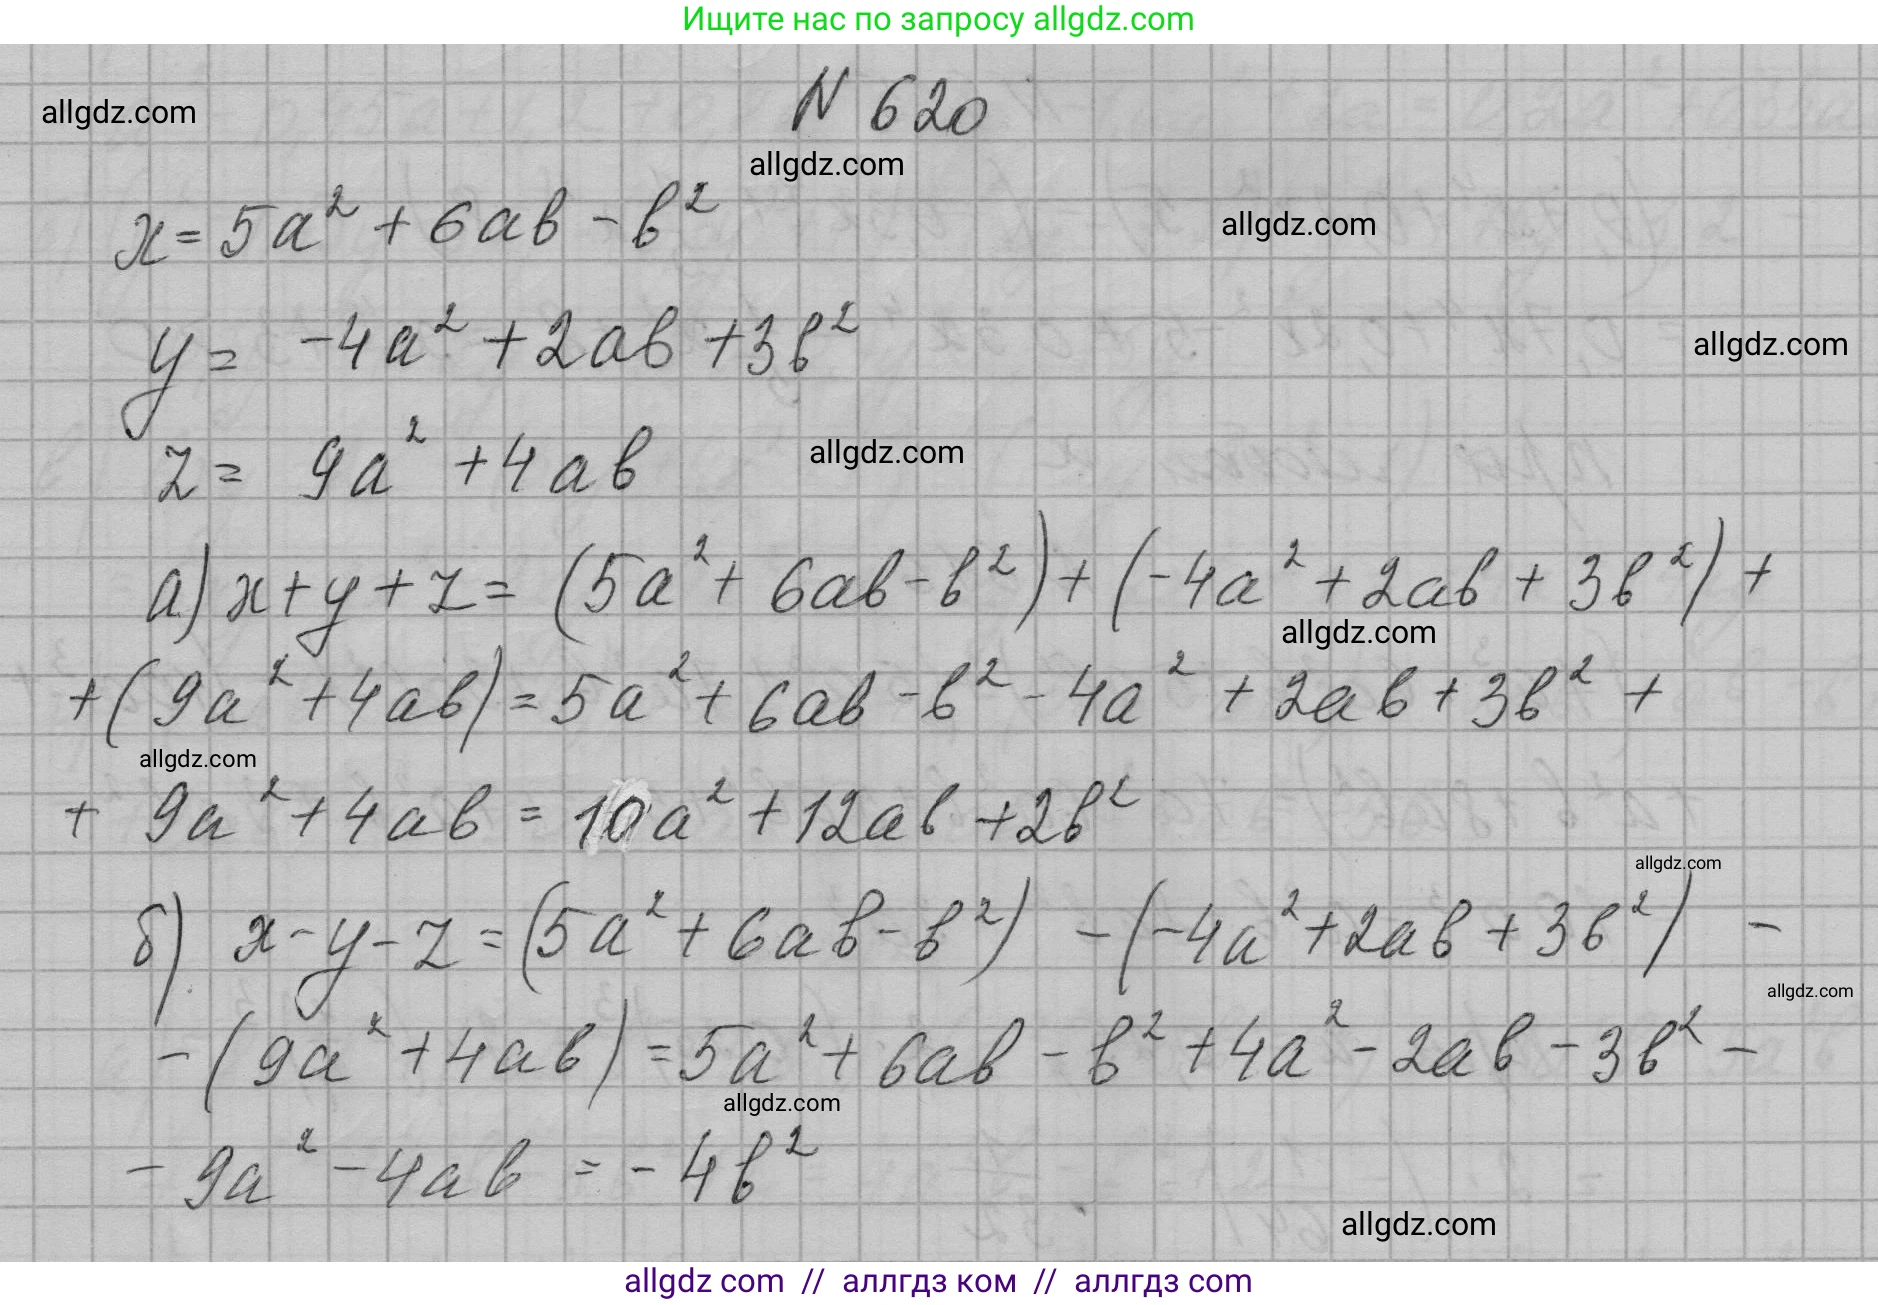 Ищите нас по запросу allgdz.com
allgdz.com
N 620
allgdz.com
x = 5a² + 6ab - b²
allgdz.com
y = -4a² + 2ab + 3b²
allgdz.com
z = 9a² + 4ab
allgdz.com
а) x + y + z = (5a² + 6ab - b²) + (-4a² + 2ab + 3b²) +
allgdz.com
+ (9a² + 4ab) = 5a² + 6ab - b² - 4a² + 2ab + 3b² +
allgdz.com
+ 9a² + 4ab = 10a² + 12ab + 2b²
allgdz.com
б) x - y - z = (5a² + 6ab - b²) - (-4a² + 2ab + 3b²) -
allgdz.com
- (9a² + 4ab) = 5a² + 6ab - b² + 4a² - 2ab - 3b² -
allgdz.com
- 9a² - 4ab = -4b²
allgdz.com
allgdz com // аллгдз ком // аллгдз com